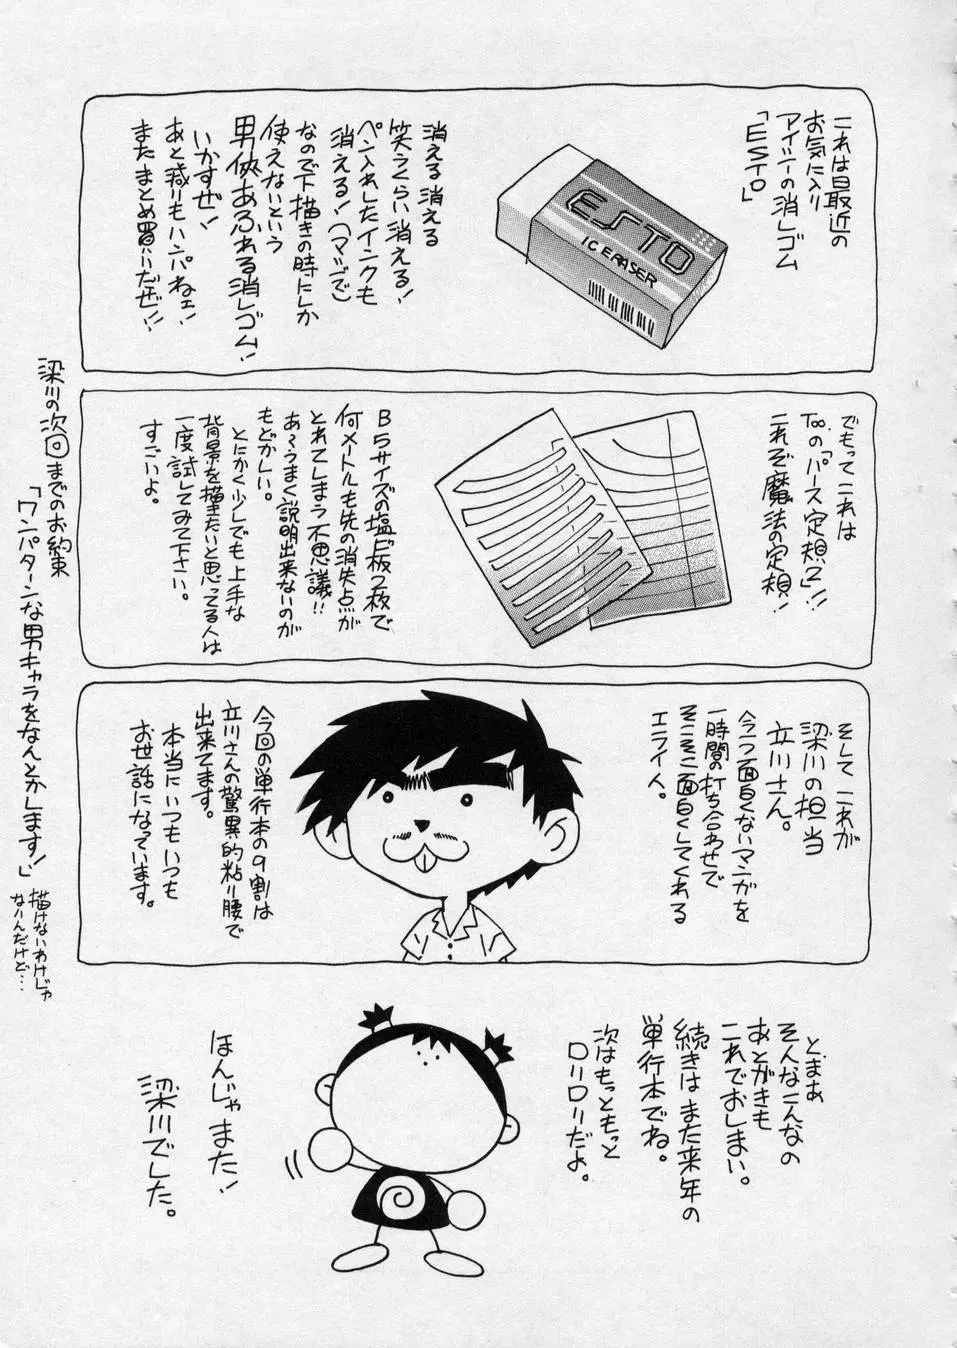 これは最近の
お気に入り
アイシーの消しゴム
「ESTO」
ESTO
IC ERASER
消える消える
笑うくらい消える!
ペン入れしたインクも
消える!(マジで)
なので下描きの時にしか
使えないという
男侠あふれる消しゴム!
いかすぜ!
あと減りもハンパねェ!
またまとめ買いだぜ!!
でもってこれは
Too.の「パース定規2」!!
これぞ魔法の定規!
B5サイズの塩ビ板2枚で
何メートルも先の消失点が
とれてしまう不思議!!
あ〜うまく説明出来ないのが
もどかしい。
とにかく少しでも上手な
背景を描きたいと思ってる人は
一度試してみて下さい。
すごいよ。
そしてこれが
梁川の担当
立川さん。
今一つ面白くないマンガを
一時間の打ち合わせで
そこそこ面白くしてくれる
エライ人。
今回の単行本の9割は
立川さんの驚異的粘り腰で
出来てます。
本当にいつもいつも
お世話になっています。
とまあ
そんなこんなの
あとがきも
これでおしまい。
続きはまた来年の
単行本でね。
次はもっともっと
ロリロリだよ。
ほんじゃまた!
梁川でした。
梁川の次回までのお約束
「ワンパターンな男キャラをなんとかします!」
描けないわけじゃ
ないんだけど…